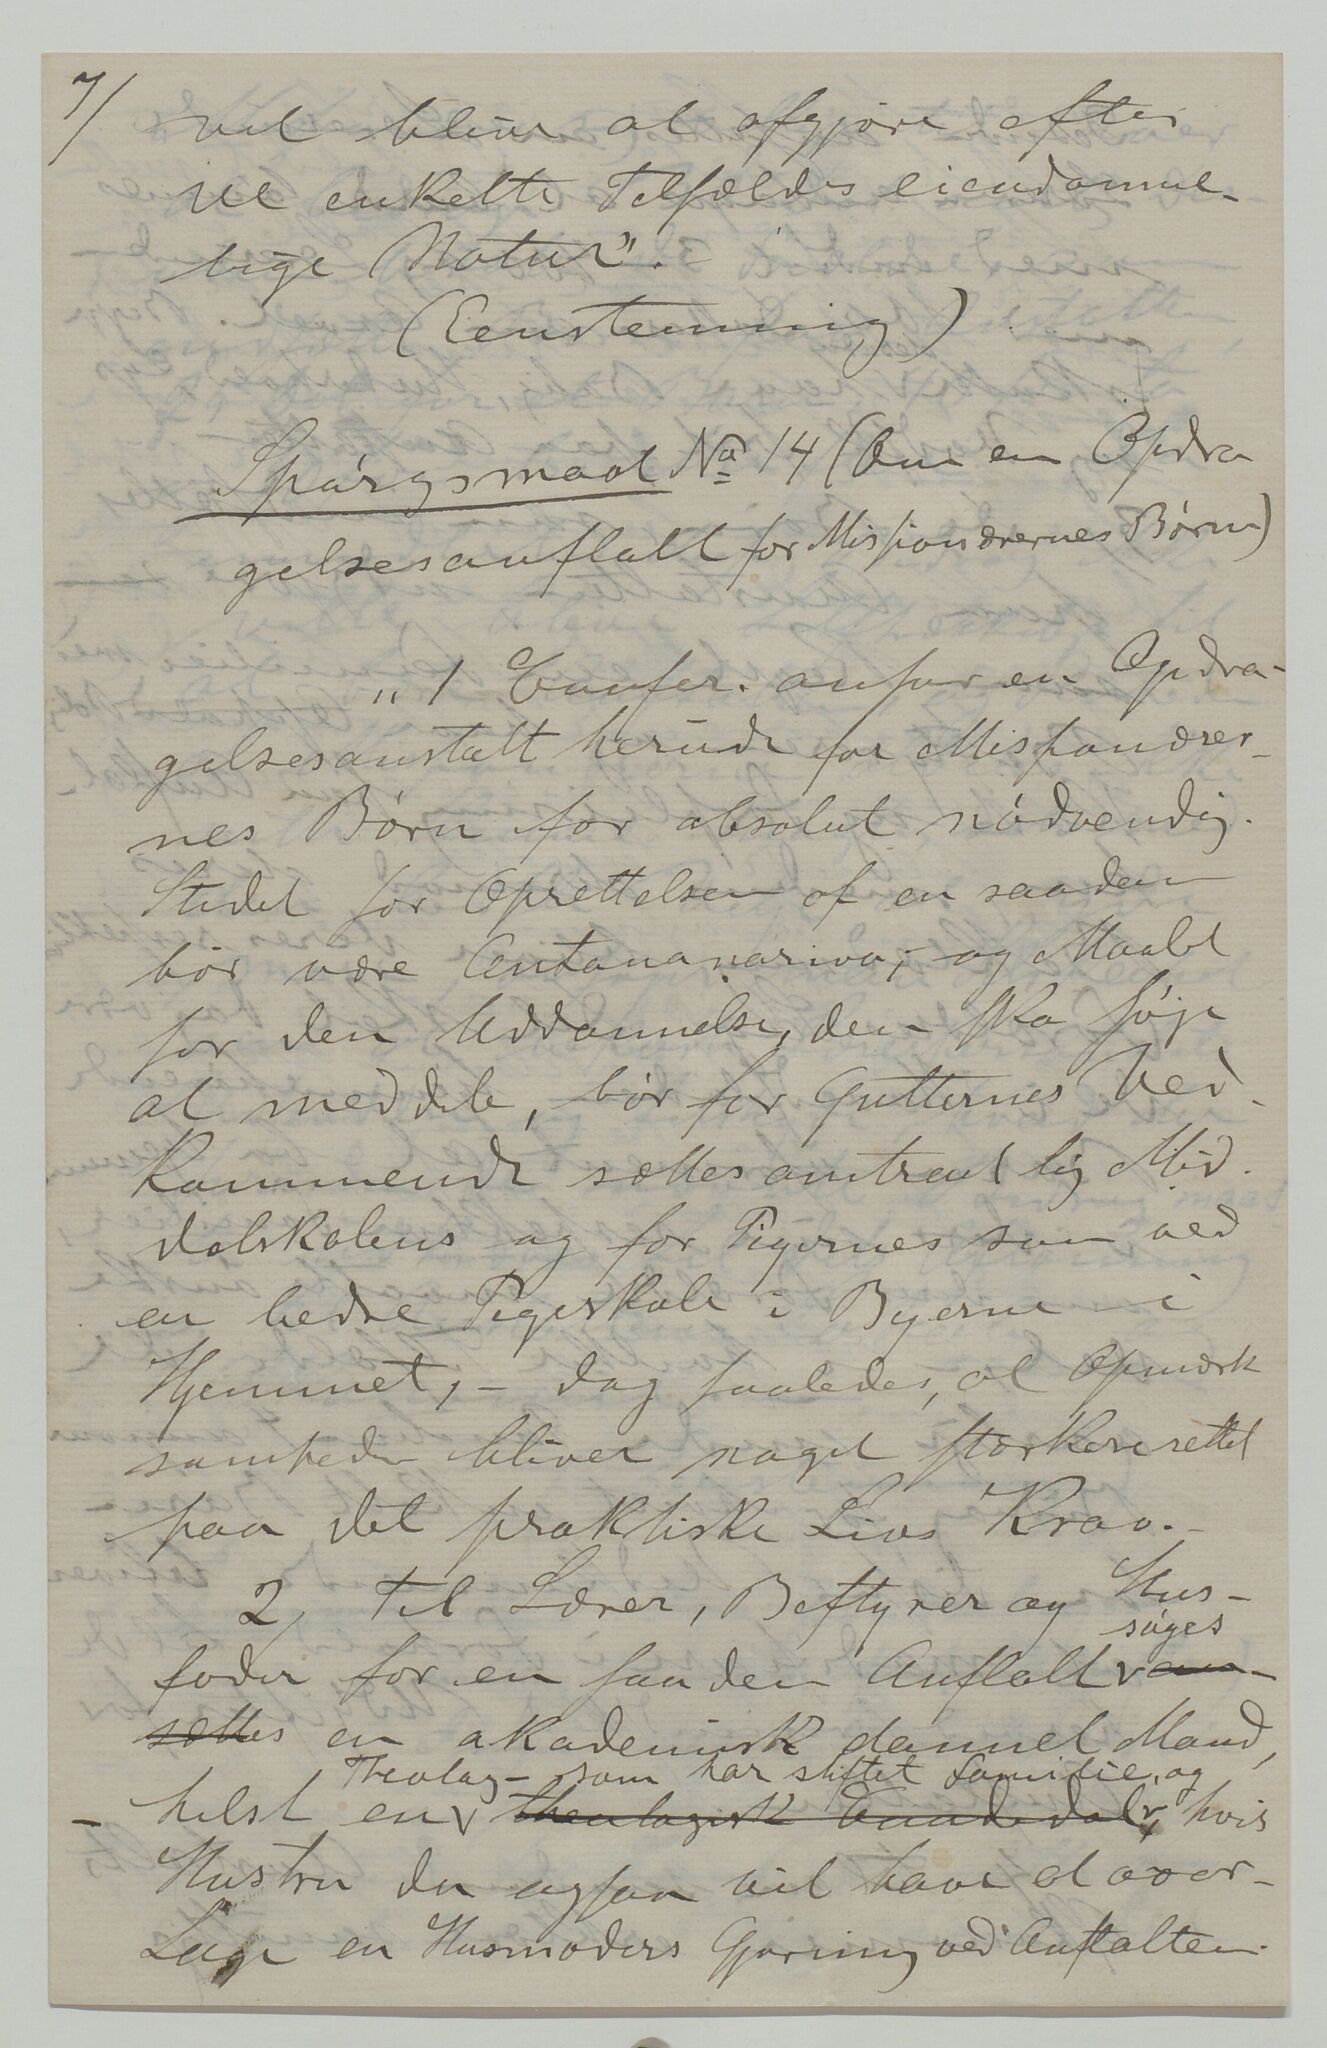 7/
vil blive at afgjøre efter
det enkelte Tilfældes eiendomme-
lige Natur".
(Eenstemmig)
Spørgsmaal No 14 (Om en Opdra
gelsesanstalt for Missionærernes Børn)
"1 Confer. anser en Opdra-
gelsesanstalt herude for Missionærer-
nes Børn for absolut nødvendig.
Stedet for Oprettelsen af en saadan
bør være Antananarivo; - og Maalet
for den Uddannelse, den ska søge
at meddele, bør for Gutternes Ved-
kommende sættes omtrent lig Mid-
delskolens og for Pigernes som ved
en bedre Pigeskole i Byerne i
Hjemmet, - dog saaledes, at Opmærk
somheden bliver noget stærkere rettet
paa det praktiske Livs Krav. -
2, Til Lærer, Bestyrer og Hus-
søges
fader for en saadan Anstalt v an-
sættes en akademisk dannet Mand,
Theolog - som har stiftet Familie, og
- helst en v theologisk Candidat v, hvis
Hustru da ogsaa vil have at over-
tage en Husmoders Gjerning ved Anstalten.